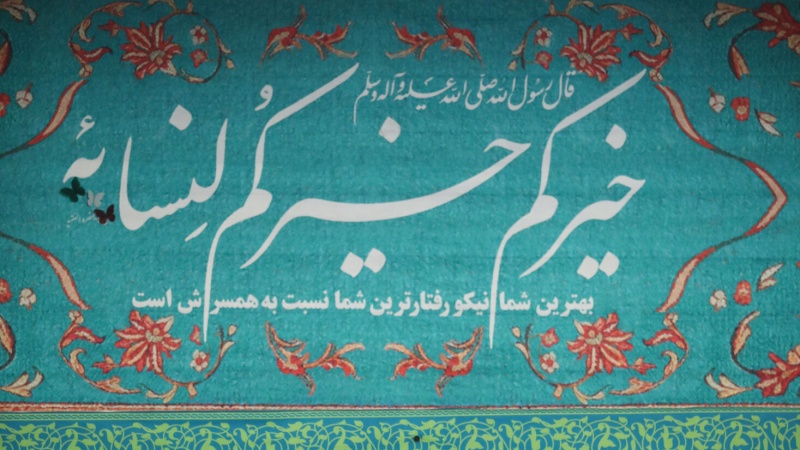 قال رسول الله صلی الله علیه و آله وسلم
خیرکم خیرکُم لِنسائه
بهترین شما نیکو رفتارترین شما نسبت به همسرش است